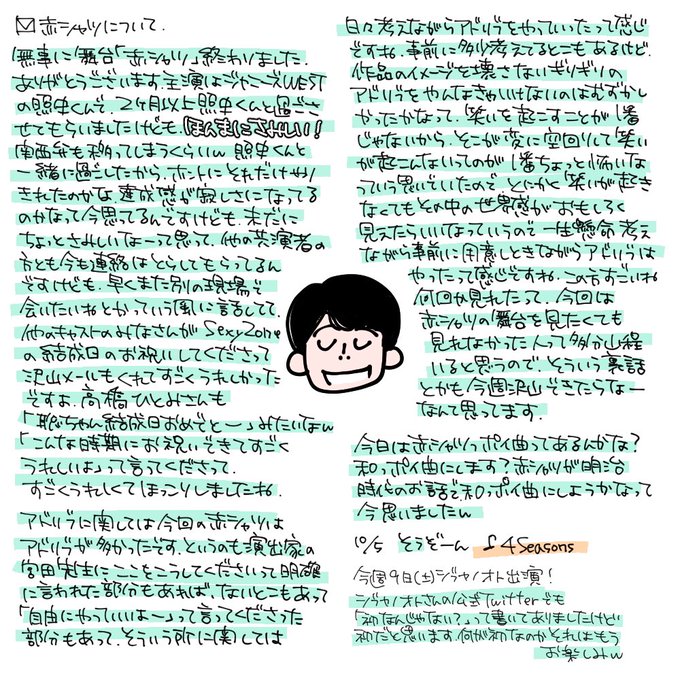 赤シャツについて.
無事に舞台「赤シャツ」終わりました.
ありがとうございます.主演はジャニーズWEST
の照史くんで.2ヶ月以上照史くんと過ごさ
せてもらいましたけども.ほんまにさみしい!
関西弁も移ってしまうくらいw 照史くんと
一緒に過ごしたから.ホントにそれだけやり
きれたのかな.達成感が寂しさになってる
のかなって今思ってるんですけども.未だに
ちょっとさみしいなーって思って.他の共演者の
方とも今も連絡はとらしてもらってるん
ですけども.早くまた別の現場で
会いたいねとかっていう風に話してて.
他のキャストのみなさんがSexyZone
の結成日のお祝いしてくださって
沢山メールもくれてすごくうれしかった
ですよ.高橋ひとみさんも
「聡ちゃん結成日おめでとー」みたいなw
「こんな時期にお祝いできてすごく
うれしいよ」って言ってくださって.
すごくうれしくてほっこりしましたね.
アドリブに関しては今回の赤シャツは
アドリブが多かったです.というのも演出家の
宮田先生にここをこうしてくださいって明確
に言われた部分もあれば.ないとこもあって
「自由にやっていいよー」って言ってくださった
部分もあって.そういう所に関しては
日々考えながらアドリブをやっていったって感じ
ですね.事前に多少考えてるとこもあるけど.
作品のイメージを壊さないギリギリの
アドリブをやんなきゃいけないのはむずかし
かったかなって.笑いを起こすことが1番
じゃないから.そこが変に空回りして笑い
が起こんないってのが1番ちょっと怖いな
っていう思いでいたので.とにかく笑いが起き
なくてもその中の世界感がおもしろく
見えたらいいなっていうので一生懸命考え
ながら事前に用意しときながらアドリブは
やったって感じですね.この方すごいね
何回か見れたって.今回は
赤シャツの舞台を見たくても
見れなかった人って多分山程
いると思うので.そういう裏話
とかも今週沢山できたらなー
なんて思ってます.
今日は赤シャツっポイ曲ってあるんかな?
和っポイ曲にします?赤シャツが明治
時代のお話で和っポイ曲にしようかなって
今思いましたw
10/5 そうぞーん ♪4Seasons
今週9日(土)ジャナノオト出演!
ジャナノオトさんの公式Twitterでも
「初なんじゃない?」って書いてありましたけど
初だと思います.何が初なのかそれはもう
お楽しみw